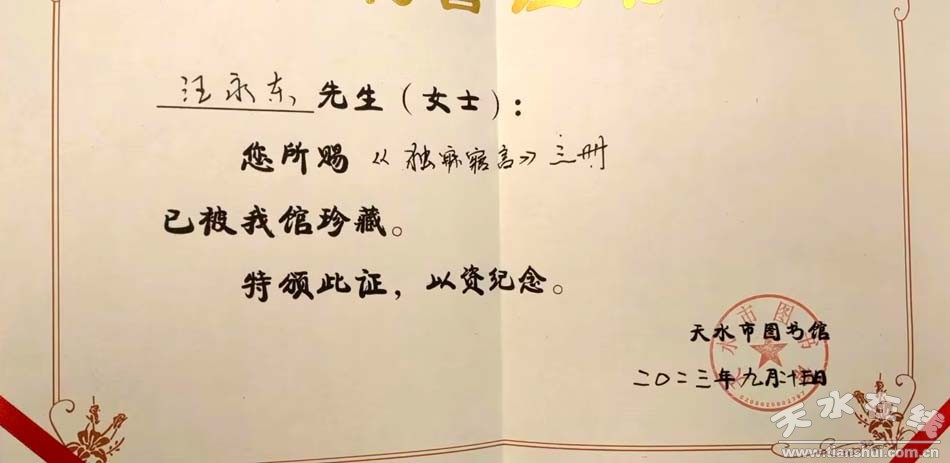 汪永东 先生（女士）：
您所赐《独寐寤言》三册
已被我馆珍藏。
特颁此证，以资纪念。
天水市图书馆
二〇二三年九月二十五日
天水市图书馆
天水在线
www.tianshui.com.cn